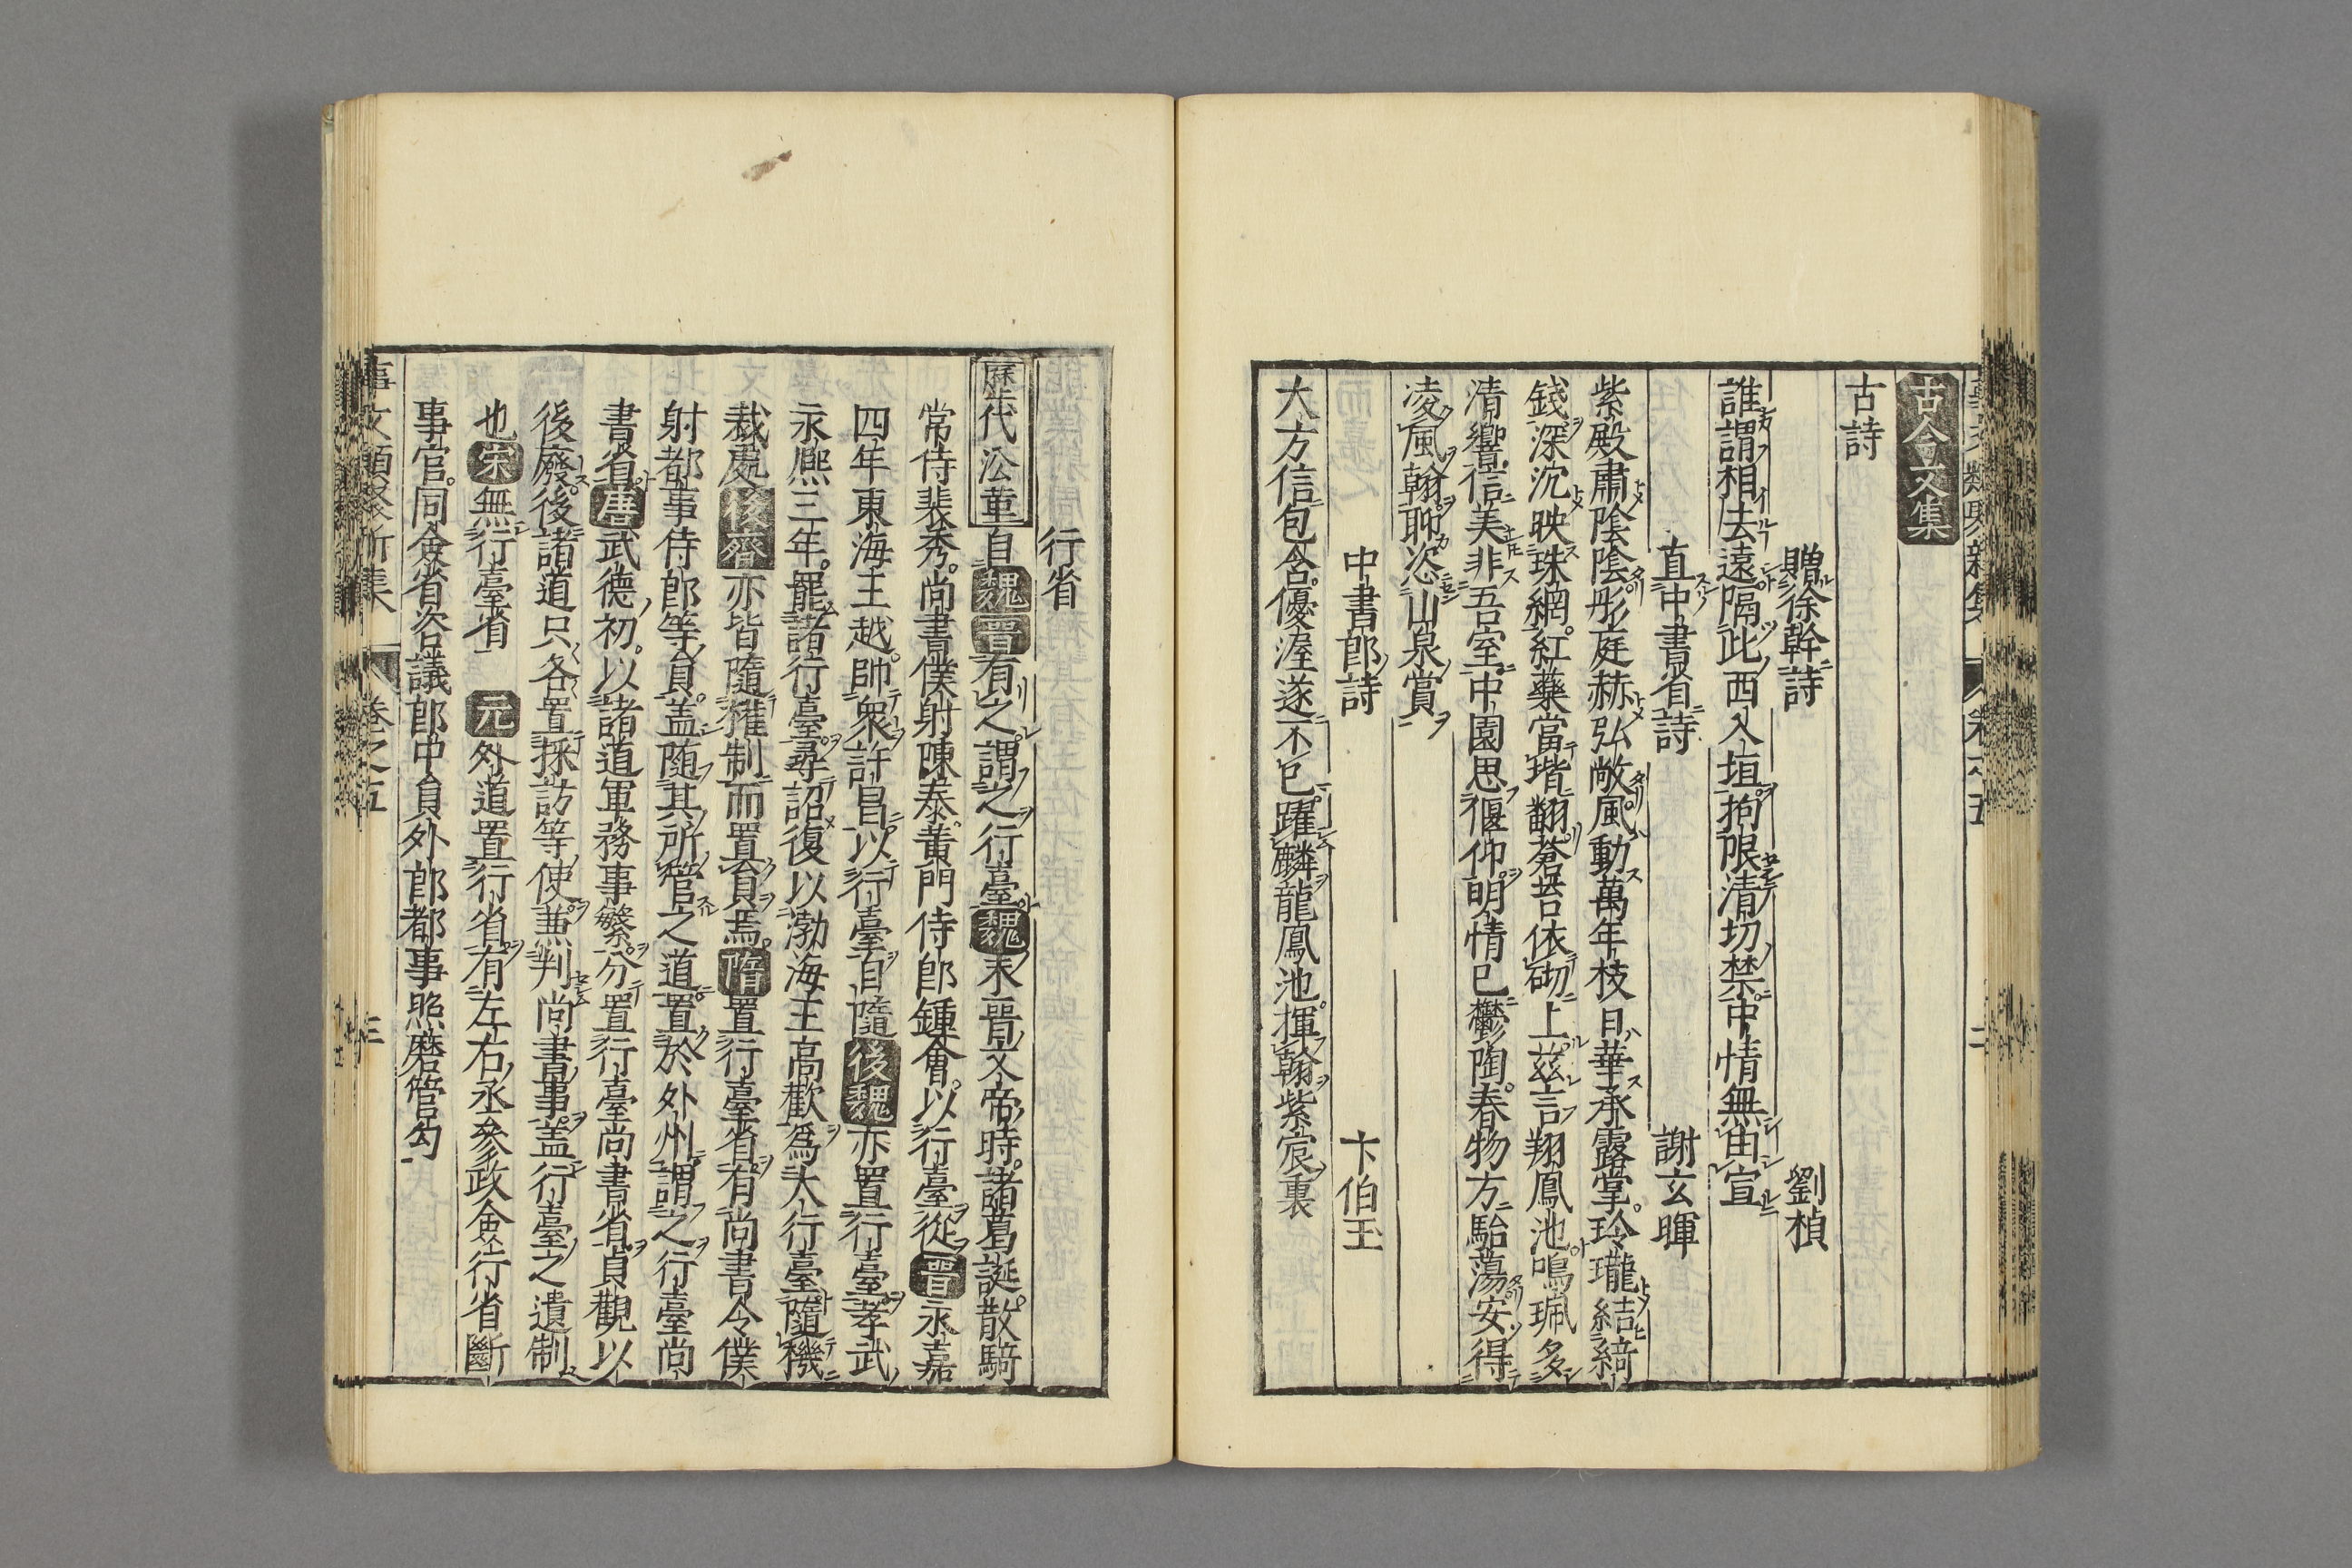 古今文集
古詩
贈徐幹詩 劉楨
誰謂相去遠隔此西入垣拘限清切禁中情無由宣
直中書省詩 謝玄暉
紫殿肅陰陰彤庭赫弘敞風動萬年枝日華承露掌玲瓏結綺
錢深沉映珠網紅藥當堦翻蒼苔依砌上茲言翔鳳池鳴珮多
清響信美非吾室中園思偃仰明情已鬱陶春物方駘蕩安得
凌風翰聊恣山泉賞
中書郎詩 卞伯玉
大方信包含優渥遂不已躍麟龍鳳池揮翰紫宸裏
行省
歷代沿革自魏晉有之謂之行臺魏末晉文帝時諸葛誕散騎
常侍裴秀尚書僕射陳泰黃門侍郎鍾會以行臺從晉永嘉
四年東海王越帥衆許昌以行臺自隨後魏亦置行臺孝武
永熈三年罷諸行臺尋詔復以渤海王高歡爲大行臺隨機
裁處後齊亦皆隨權制而置員焉隋置行臺省有尚書令僕
射都事侍郎等員盖随其所管之道置於外州謂之行臺尚
書省唐武德初以諸道軍務事繁分置行臺尚書省貞觀以
後廢後諸道只各置採訪等使兼判尚書事盖行臺之遺制
也宋無行臺省 元外道置行省有左右丞參政僉行省斷
事官同僉省咨議郎中員外郎都事照磨管勾
事文類聚新集 卷之五 三